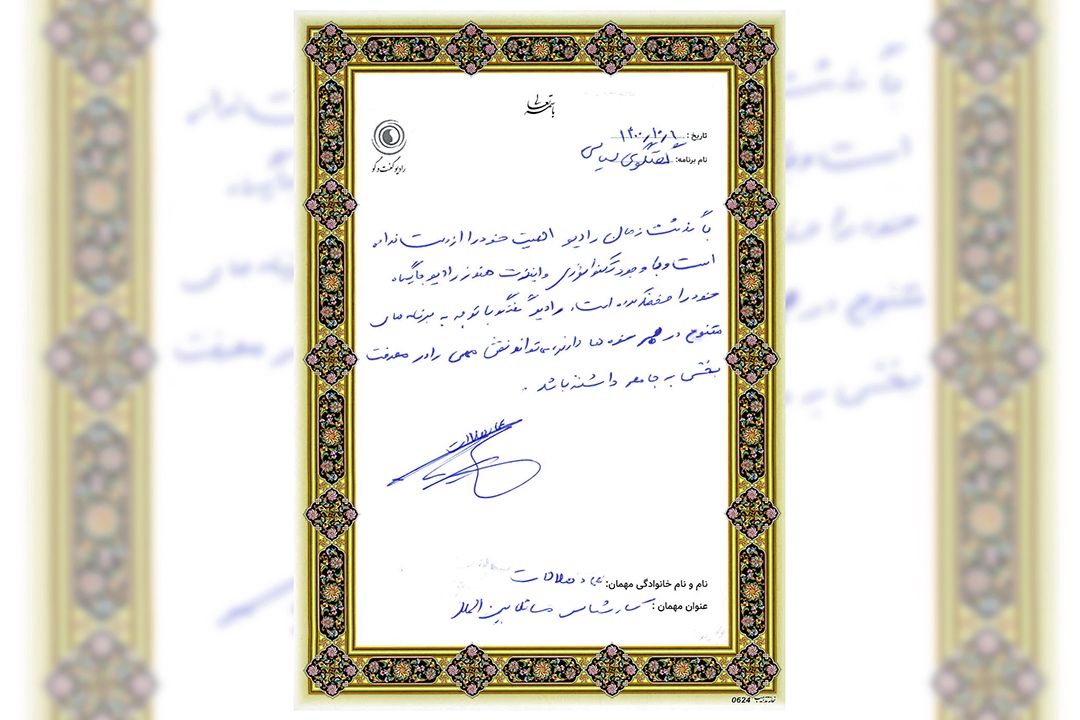 باسمه تعالی
رادیو گفت و گو
تاریخ :
نام برنامه: گفتگوی سیاسی
با گذشت زمان رادیو اهمیت خود را از دست نداده
است و با وجود تکنولوژی و اینترنت هنوز رادیو جایگاه
خود را حفظ کرده است. رادیو گفتگو با توجه به برنامه های
متنوع در همه حوزه ها دارند، می تواند نقش مهمی را در معرفت
بخشی به جامعه داشته باشد .
نام و نام خانوادگی مهمان:
عنوان مهمان : کارشناس مسائل بین الملل
0624